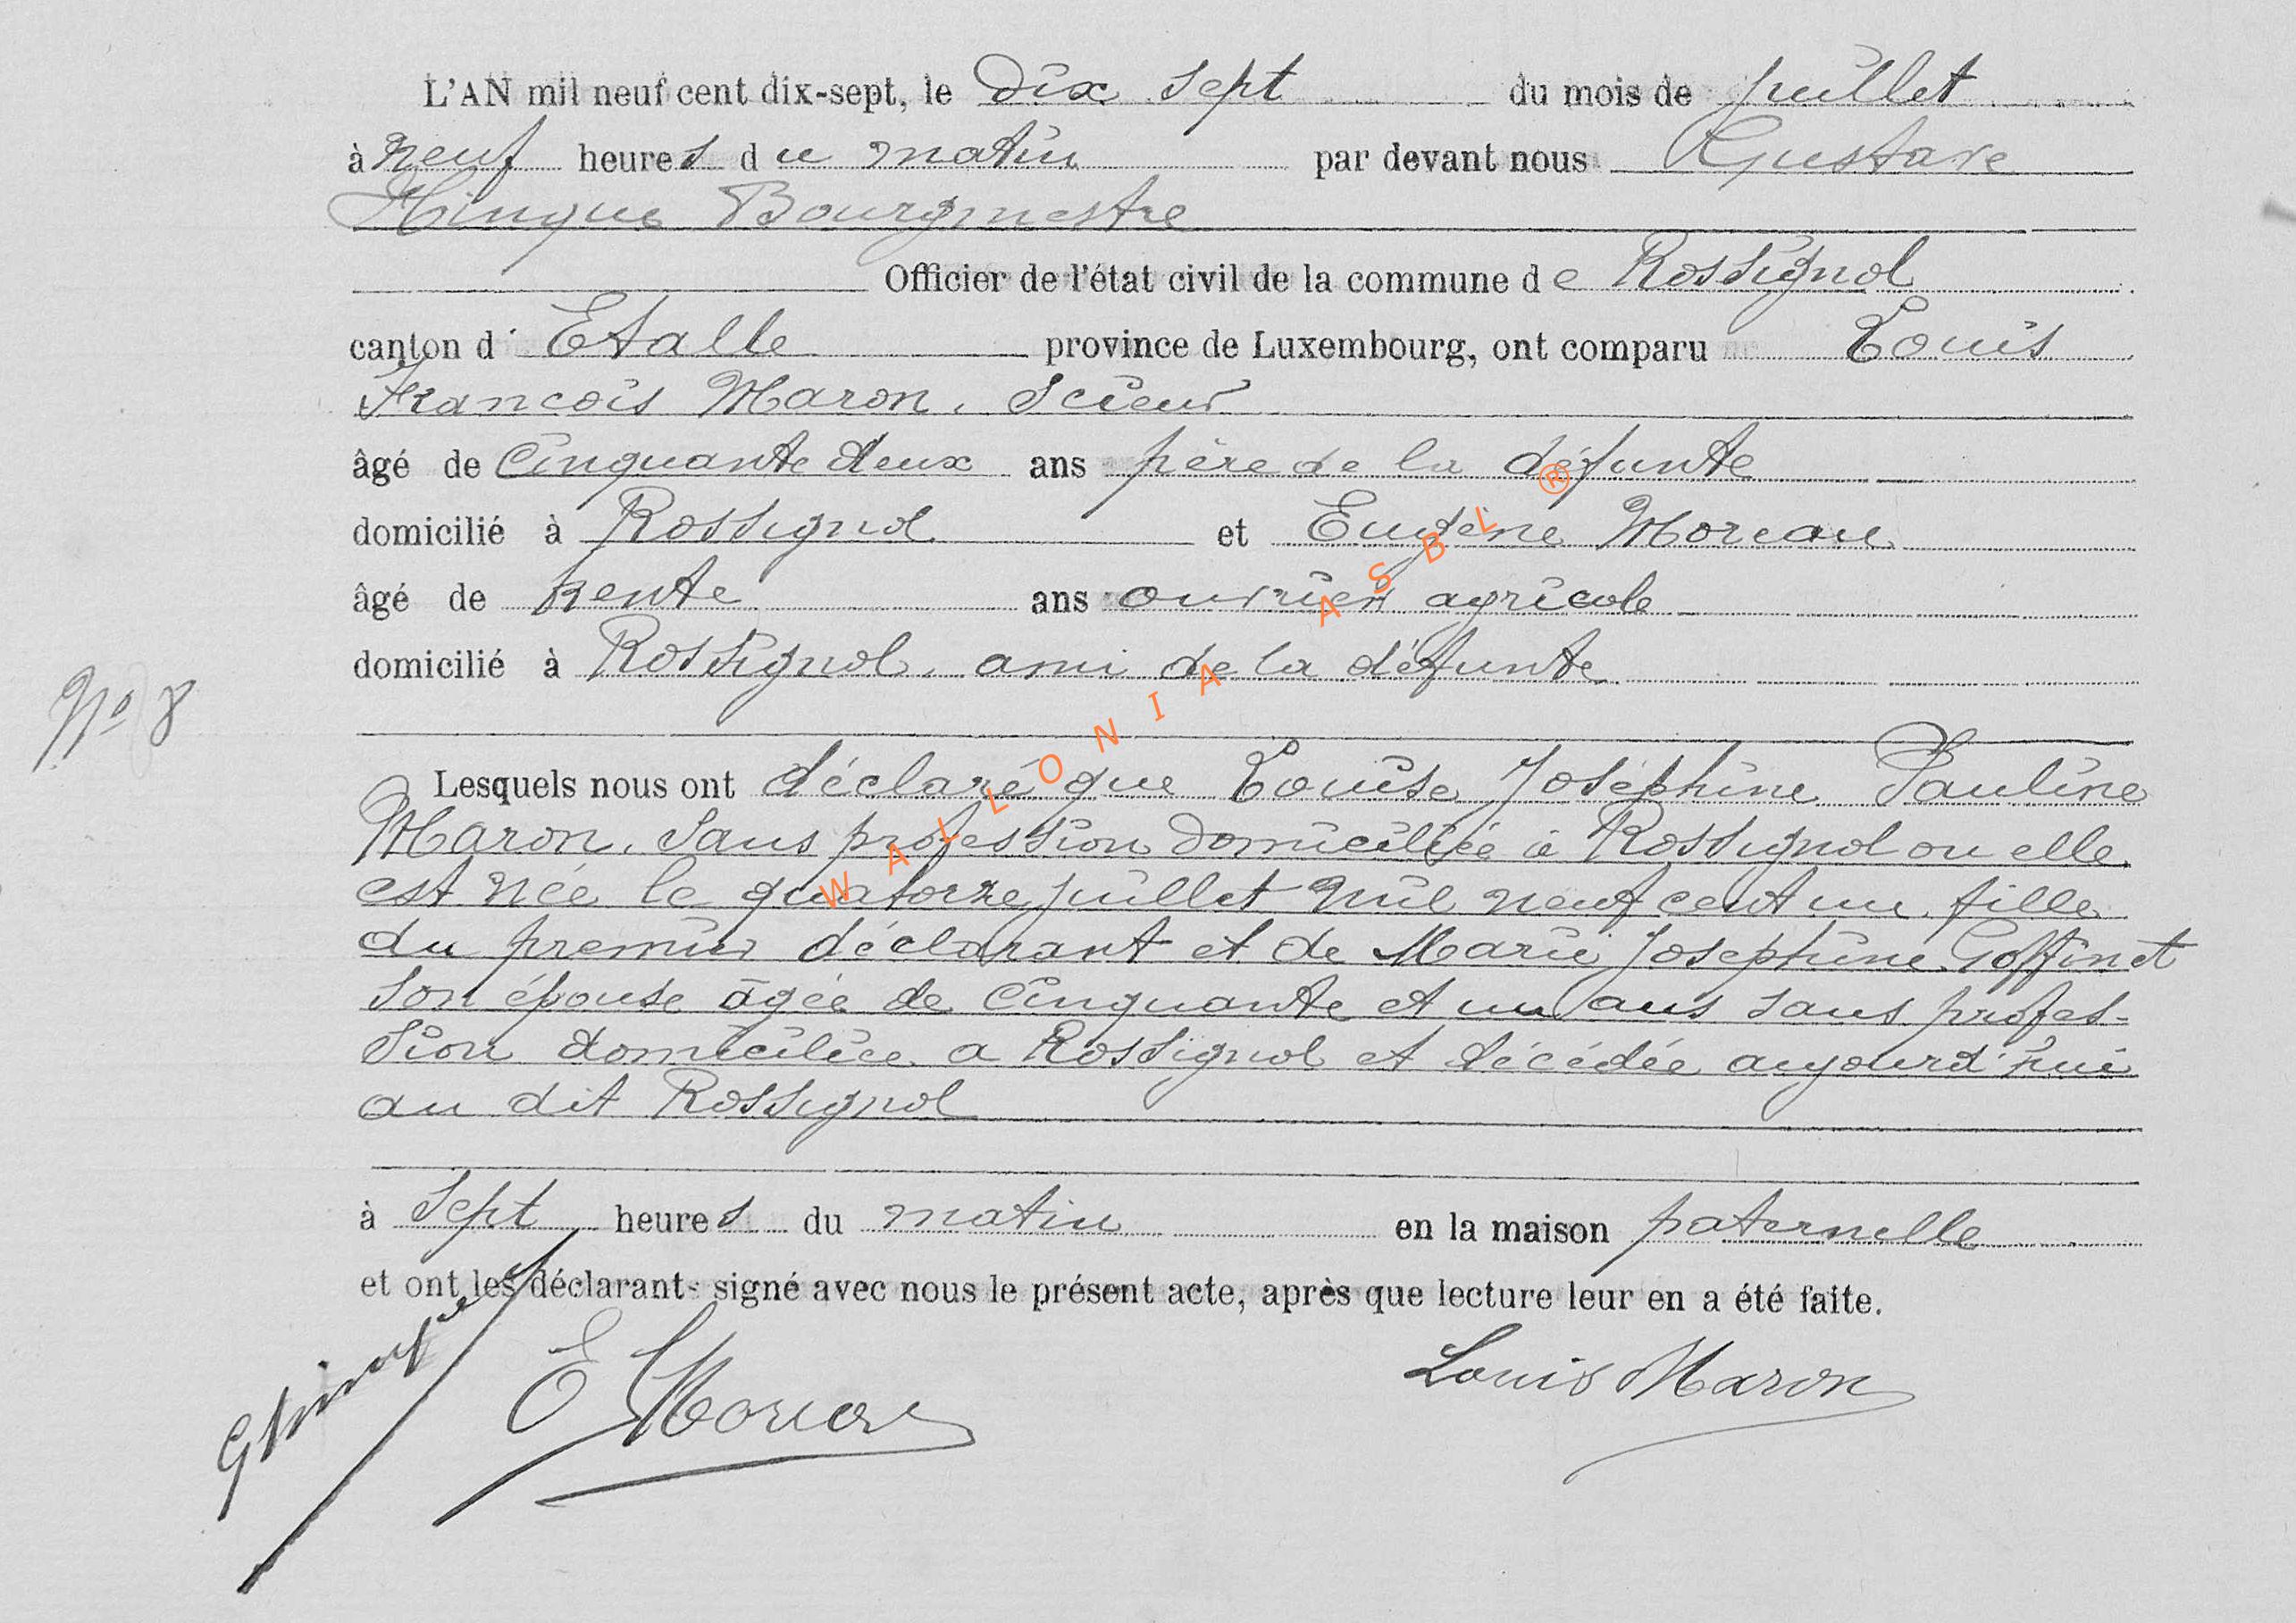 L'AN mil neuf cent dix-sept, le Dix sept du mois de juillet
à neuf heures du matin par devant nous Gustave
Hinque Bourgmestre
Officier de l'état civil de la commune de Rossignol
canton d' Etalle province de Luxembourg, ont comparu Louis
François Maron, Scieur
âgé de Cinquante deux ans père de la défunte
domicilié à Rossignol et Eugène Moreau
âgé de trente ans ouvrier agricole
domicilié à Rossignol, ami de la défunte
N° 8
Lesquels nous ont déclaré que Louise Joséphine Pauline
Maron, Sans profession Domiciliée à Rossignol ou elle
est née le quatorze juillet Mil neuf cent un, fille
du premier déclarant et de Marie Josephine Goffinet
son épouse âgée de Cinquante et un ans sans profes-
sion domiciliée a Rossignol et décédée aujourd'hui
au dit Rossignol
à Sept heures du matin en la maison paternelle
et ont les déclarant- signé avec nous le présent acte, après que lecture leur en a été faite.
E Moreau
Louis Maron
WALLONIA ASBL ®